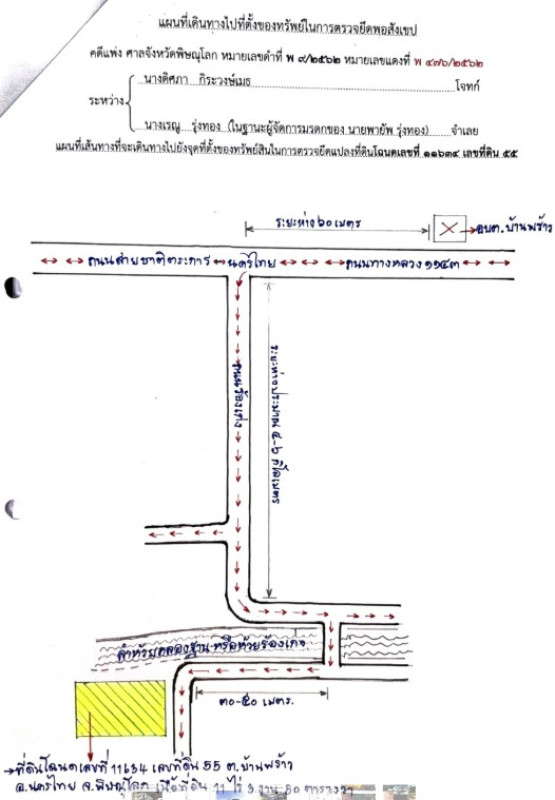 แผนที่เดินทางไปที่ตั้งของทรัพย์ในการตรวจยึดพอสังเขป
คดีแพ่ง ศาลจังหวัดพิษณุโลก หมายเลขดำที่ พ ๙/๒๕๖๒ หมายเลขแดงที่ พ ๔๗๖/๒๕๖๒
นางดิศภา กิระวงษ์เมธ โจทก์
ระหว่าง
นางเรณู รุ่งทอง (ในฐานะผู้จัดการมรดกของ นายพายัพ รุ่งทอง) จำเลย
แผนที่เส้นทางที่จะเดินทางไปยังจุดที่ตั้งของทรัพย์สินในการตรวจยึดแปลงที่ดินโฉนดเลขที่ ๑๑๖๓๔ เลขที่ดิน ๕๕
ระยะห่าง ๖๐ เมตร
อบต.บ้านพร้าว
ถนนสายชาติตระการ นครไทย ถนนทางหลวง ๑๑๔๓
ระยะห่างประมาณ ๔-๖ กิโลเมตร
ลำห้วยคลองฐาน หรือห้วยร้องเกง
๓๐-๕๐ เมตร.
ที่ดินโฉนดเลขที่ 11634 เลขที่ดิน 55 ต.บ้านพร้าว
อ.นครไทย จ.พิษณุโลก เนื้อที่ดิน 11 ไร่ 3 งาน 50 ตารางวา